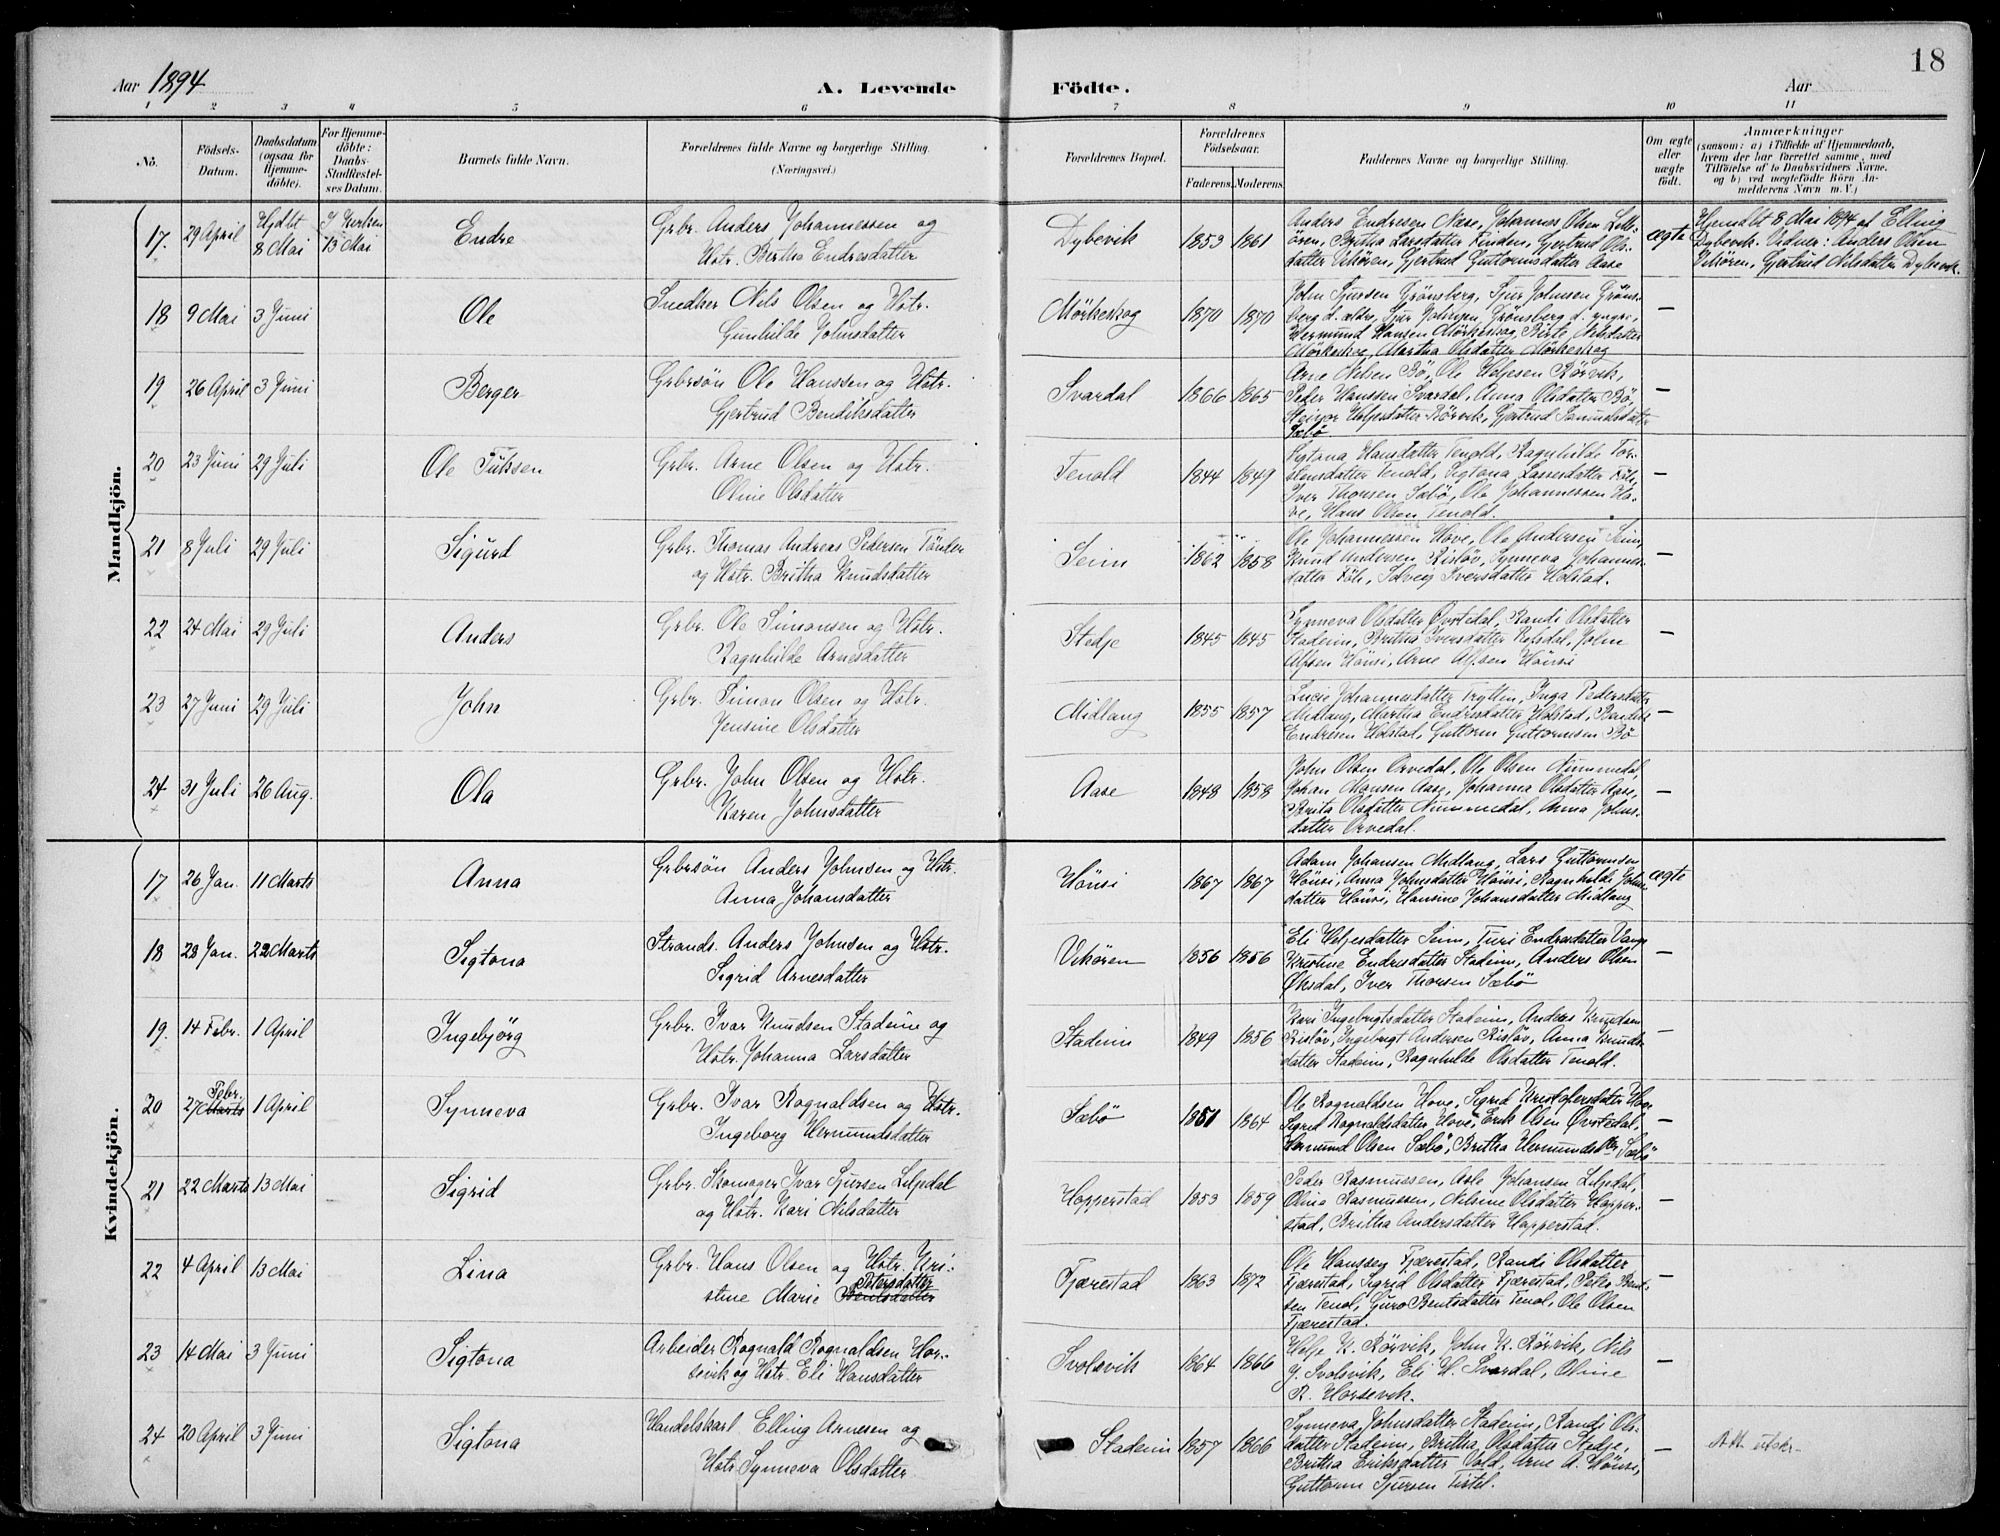 18
Aar 1894 A. Levende Födte. Aar
1 2 3 4 5 6 7 8 9 10 11
No. Födsels-Datum. Daabsdatum (ogsaa for Hjemmedöbte). For Hjemmedöbte: Daabs-Stadfæstelses Datum. Barnets fulde Navn. Forældrenes fulde Navne og borgerlige Stilling. (Næringsvei.) Forældrenes Bopæl. Forældrenes Födselsaar. Faderens. Moderens. Faddernes Navne og borgerlige Stilling. Om ægte eller uægte födt. Anmærkninger (saasom: a) i Tilfælde af Hjemmedaab, hvem der har forrettet samme, med Tilföielse af to Daabsvidners Navne, og b) ved uægtefödte Börn Anmelderens Navn m. V.)
Mandkjön.
17. 29 April Hjdbt 8 Mai I Kirken 13 Mai Endre Grbr. Anders Johannessen og
Hstr. Bertha Endresdatter Dybevik 1853 1861
Anders Endresen Aase, Johannes Olsen Vik-
ören, Britha Larsdatter Finden, Gjertrud Ols-
datter Vikören, Gjertrud Guttormsdatter Aase
ægte Hjemdbt 8 Mai 1894 af Elling
Dybevik. Vidner: Anders Olsen
Vikören, Gjertrud Nilsdatter Dybevik.
18 9 Mai 3 Juni Ole Snedker Nils Olsen og Hstr.
Gunhilde Johnsdatter Mörkeskog 1870 1870
John Sjursen Grönsberg, Sjur Johnsen Gröns-
berg d. ældre, Sjur Johnsen Grönsberg d. yngre,
Hermund Hansen Mörkeskog, Birte Nilsdatter
Mörkeskog, Martha Olsdatter Mörkeskog
—
19 26 April 3 Juni Berger Grbrsön Ole Hanssen og Hstr.
Gjertrud Bendiksdatter Svardal 1866 1865
Arne Nilsen Bö, Ole Heljesen Rörvik,
Peder Hanssen Svardal, Anna Olsdatter Bö,
Steinor Heljesdatter Rörvik, Gjertrud Samuelsdatter
Sæbö
—
20 23 Juni 29 Juli Ole Tuksen Grbr. Arne Olsen og Hstr.
Oline Olsdatter Tenold 1844 1849
Sigtona Hansdatter Tenold, Ragnhilde Tor-
stensdatter Tenold, Sigtona Lassesdatter Föli,
Iver Thorsen Sæbö, Ole Johannessen Ho-
ve, Hans Olsen Tenold.
—
21 8 Juli 29 Juli Sigurd Grbr. Thomas Andreas Pedersen Tönder
og Hstr. Britha Knudsdatter Seim 1862 1858
Ole Johannessen Hove, Ole Andersen Seim,
Knud Andersen Risløv, Synneva Johannes-
datter Föli, Solveig Iversdatter Holstad.
—
22 24 Mai 29 Juli Anders Grbr. Ole Simonsen og Hstr.
Ragnhilde Arnesdatter Stedje 1845 1845
Synneva Olsdatter Øvstedal, Randi Olsdatter
Stadeim, Britha Iversdatter Refsdal, John
Alfsen Hönsi, Arne Alfsen Hönsi
—
23 27 Juni 29 Juli John Grbr. Simon Olsen og Hstr.
Jensine Olsdatter Midlang 1855 1857
Lucie Johannesdatter Trytten, Inga Pedersdatter
Midlang, Martha Endresdatter Holstad,
Endresen Holstad, Guttorm Guttormsen Bö
—
24 31 Juli 26 Aug. Ola Grbr. John Olsen og Hstr.
Karen Johnsdatter Aase 1848 1858
John Olsen Orvedal, Ole Olsen Nummedal,
Johan Monsen Aase, Johanna Olsdatter Aase,
Brita Olsdatter Nummedal, Anna Johns-
datter Orvedal.
—
Kvindekjön.
17 26 Jan. 11 Marts Anna Grbrsön Anders Johnsen og Hstr.
Anna Johansdatter Hönsi 1867 1867
Adam Johansen Midlang, Lars Guttormsen
Hönsi, Anna Johnsdatter Hönsi, Ragnhilde Johns-
datter Hönsi, Hansine Johansdatter Midlang
ægte
18 28 Jan. 22 Marts Sigtona Strands. Anders Johnsen og Hstr.
Sigrid Arnesdatter Vikören 1856 1856
Eli Heljesdatter Seim, Turi Endresdatter Vange
Kristine Endresdatter Stadeim, Anders Olsen
Øksdal, Iver Thorsen Sæbö
—
19. 14 Febr. 1 April Ingebjörg Grbr. Ivar Knudsen Stadeim og
Hstr. Johanna Larsdatter Stadeim 1849 1856
Kari Ingebrigtsdatter Stadeim, Anders Knudsen
Risløv, Ingebrigt Andersen Risløv, Anna Knuds-
datter Stadeim, Ragnhilde Olsdatter Tenold.
—
20 27 Marts Febr. 1 April Synneva Grbr. Ivar Rognaldsen og Hstr.
Ingeborg Hermundsdatter Sæbö 1851 1864
Ole Rognaldsen Hove, Sigrid Kristophersdatter Hove
Sigrid Rognaldsdatter Hove, Erik Olsen Øvstedal,
Hermund Olsen Sæbö, Britha Hermundsdtr Sæbö
—
21 22 Marts 13 Mai Sigrid Grbr. Skomager Ivar Sjursen Liljedal
og Hstr. Kari Nilsdatter Hopperstad 1853 1859
Peder Rasmussen, Asle Johansen Liljedal,
Olina Rasmussen, Nilsine Olsdatter Hopper-
stad, Britha Andersdatter Hopperstad.
—
22 4 April 13 Mai Lina Grbr. Hans Olsen og Hstr. Kri-
stine Marie Bentsdatter Petersdatter Fjærestad 1863 1872
Ole Hanssen Fjærestad, Randi Olsdatter
Fjærestad, Sigrid Olsdatter Fjærestad, Peter Bent-
sen Tenol, Guro Bentsdatter Tenol, Ole Olsen
Fjærestad.
—
23 14 Mai 3 Juni Sigtona Arbeider Rognald Rognaldsen Hor-
sevik og Hstr. Eli Hansdatter Svolsvik 1864 1866
Helje K. Rörvik, John K. Rörvik, Nils
J. Svolsvik, Eli H. Svardal, Oline
R. Horsevik.
—
24 20 April 3 Juni Sigtona Handelskarl Elling Arnesen og
Hstr. Synneva Olsdatter Stadeim 1857 1866
Synneva Johnsdatter Stadeim, Randi Ols-
datter Stadeim, Britha Olsdatter Stedje,
Britha Eriksdatter Vold, Arne A. Hönsi,
Guttorm Sjursen Tistel.
— Att. utskr.